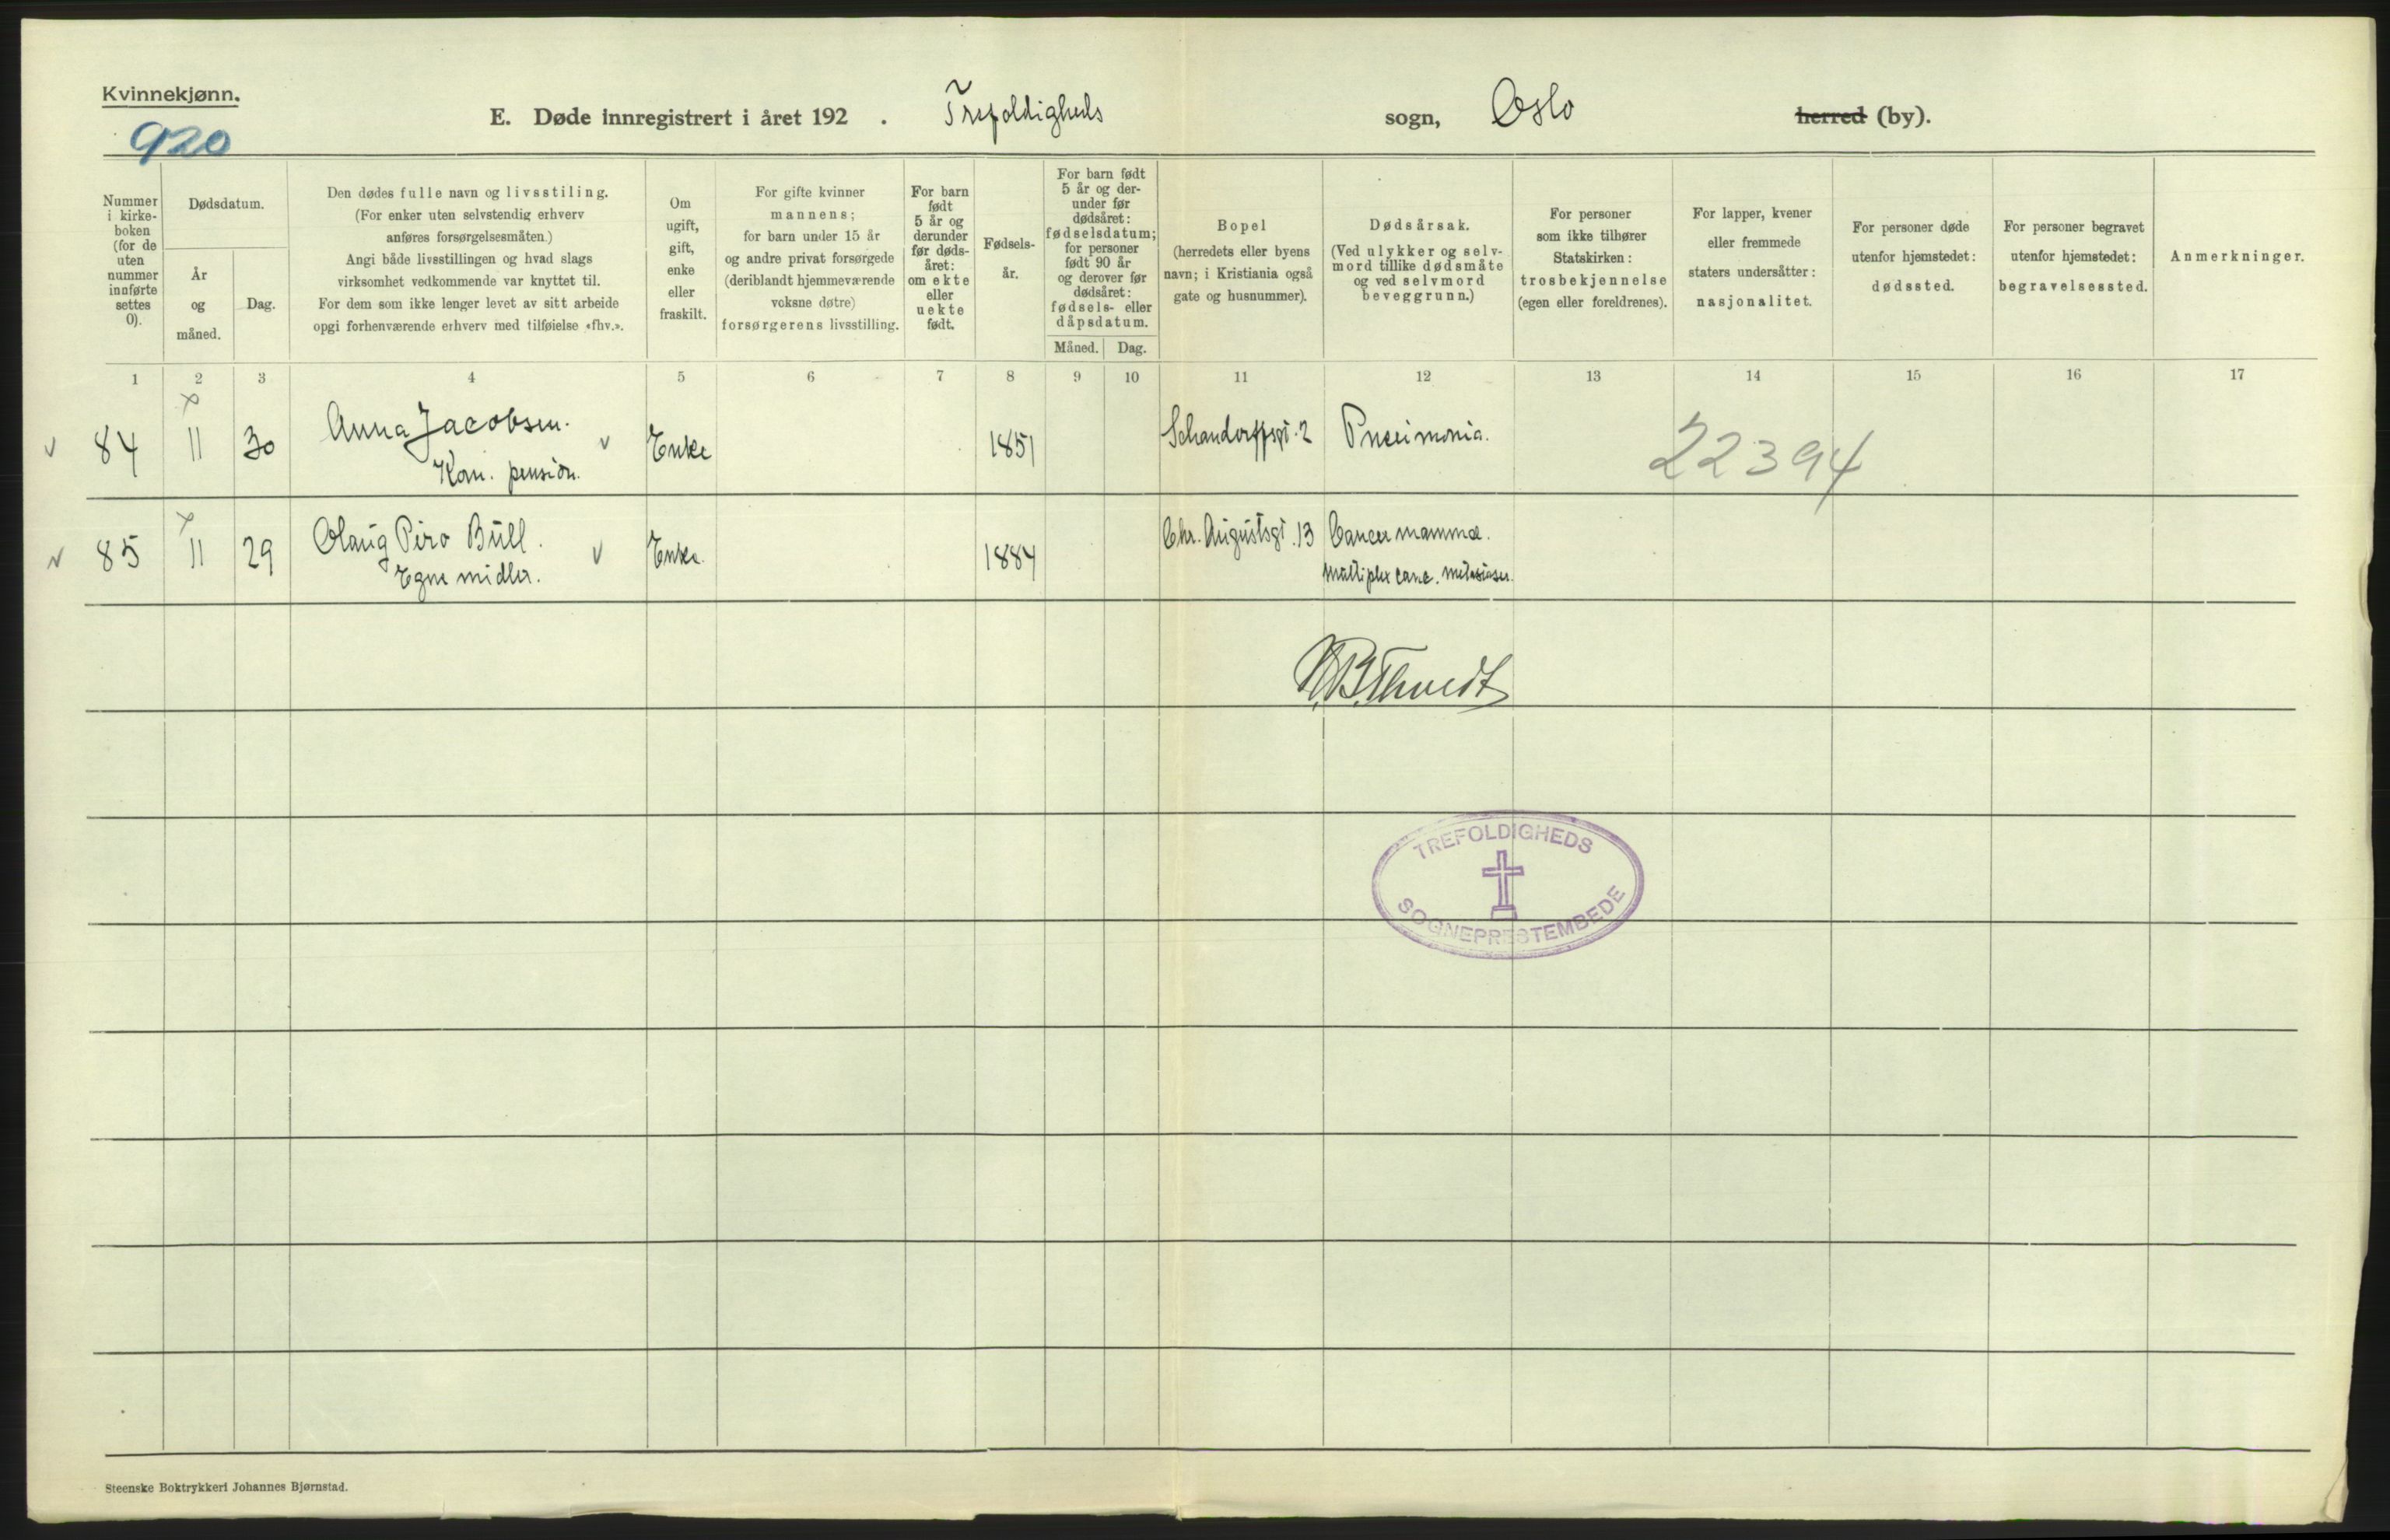 Kvinnekjønn.
920
E. Døde innregistrert i året 192 . Trefoldigheds sogn, Oslo herred (by).
Nummer i kirke-boken (for de uten nummer innførte settes 0).
Dødsdatum.
År og måned.
Dag.
Den dødes fulle navn og livsstiling.
(For enker uten selvstendig erhverv
anføres forsørgelsesmåten.)
Angi både livsstillingen og hvad slags
virksomhet vedkommende var knyttet til.
For dem som ikke lenger levet av sitt arbeide
opgi forhenværende erhverv med tilføielse «fhv.».
Om
ugift,
gift,
enke
eller
fraskilt.
For gifte kvinner
mannens;
for barn under 15 år
og andre privat forsørgede
(deriblandt hjemmeværende
voksne døtre)
forsørgerens livsstilling.
For barn
født
5 år og
derunder
før døds-
året:
om ekte
eller
uekte
født.
Fødsels-
år.
For barn født
5 år og der-
under før
dødsåret:
fødselsdatum;
for personer
født 90 år
og derover før
dødsåret:
fødsels- eller
dåpsdatum.
Måned. Dag.
Bopel
(herredets eller byens
navn; i Kristiania også
gate og husnummer).
Dødsårsak.
(Ved ulykker og selv-
mord tillike dødsmåte
og ved selvmord
beveggrunn.)
For personer
som ikke tilhører
Statskirken:
trosbekjennelse
(egen eller foreldrenes).
For lapper, kvener
eller fremmede
staters undersåtter:
nasjonalitet.
For personer døde
utenfor hjemstedet:
dødssted.
For personer begravet
utenfor hjemstedet:
begravelsessted.
Anmerkninger.
1 2 3 4 5 6 7 8 9 10 11 12 13 14 15 16 17
84 11 30 Anna Jacobsen. Enke 1851 Schandorffsgt. 2 Pneumonia. 22394
Kom. pension.
85 11 29 Olaug Piro Bull. Enke. 1884 Chr. Augustsgt. 13 Cancer mammæ.
Egne midler. Multiplex canc. metastaser.
TREFOLDIGHEDS
SOGNEPRESTEMBEDE
Steenske Boktrykkeri Johannes Bjørnstad.